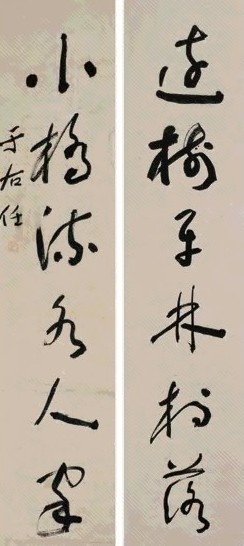 远树平林村落
小桥流水人家
于右任